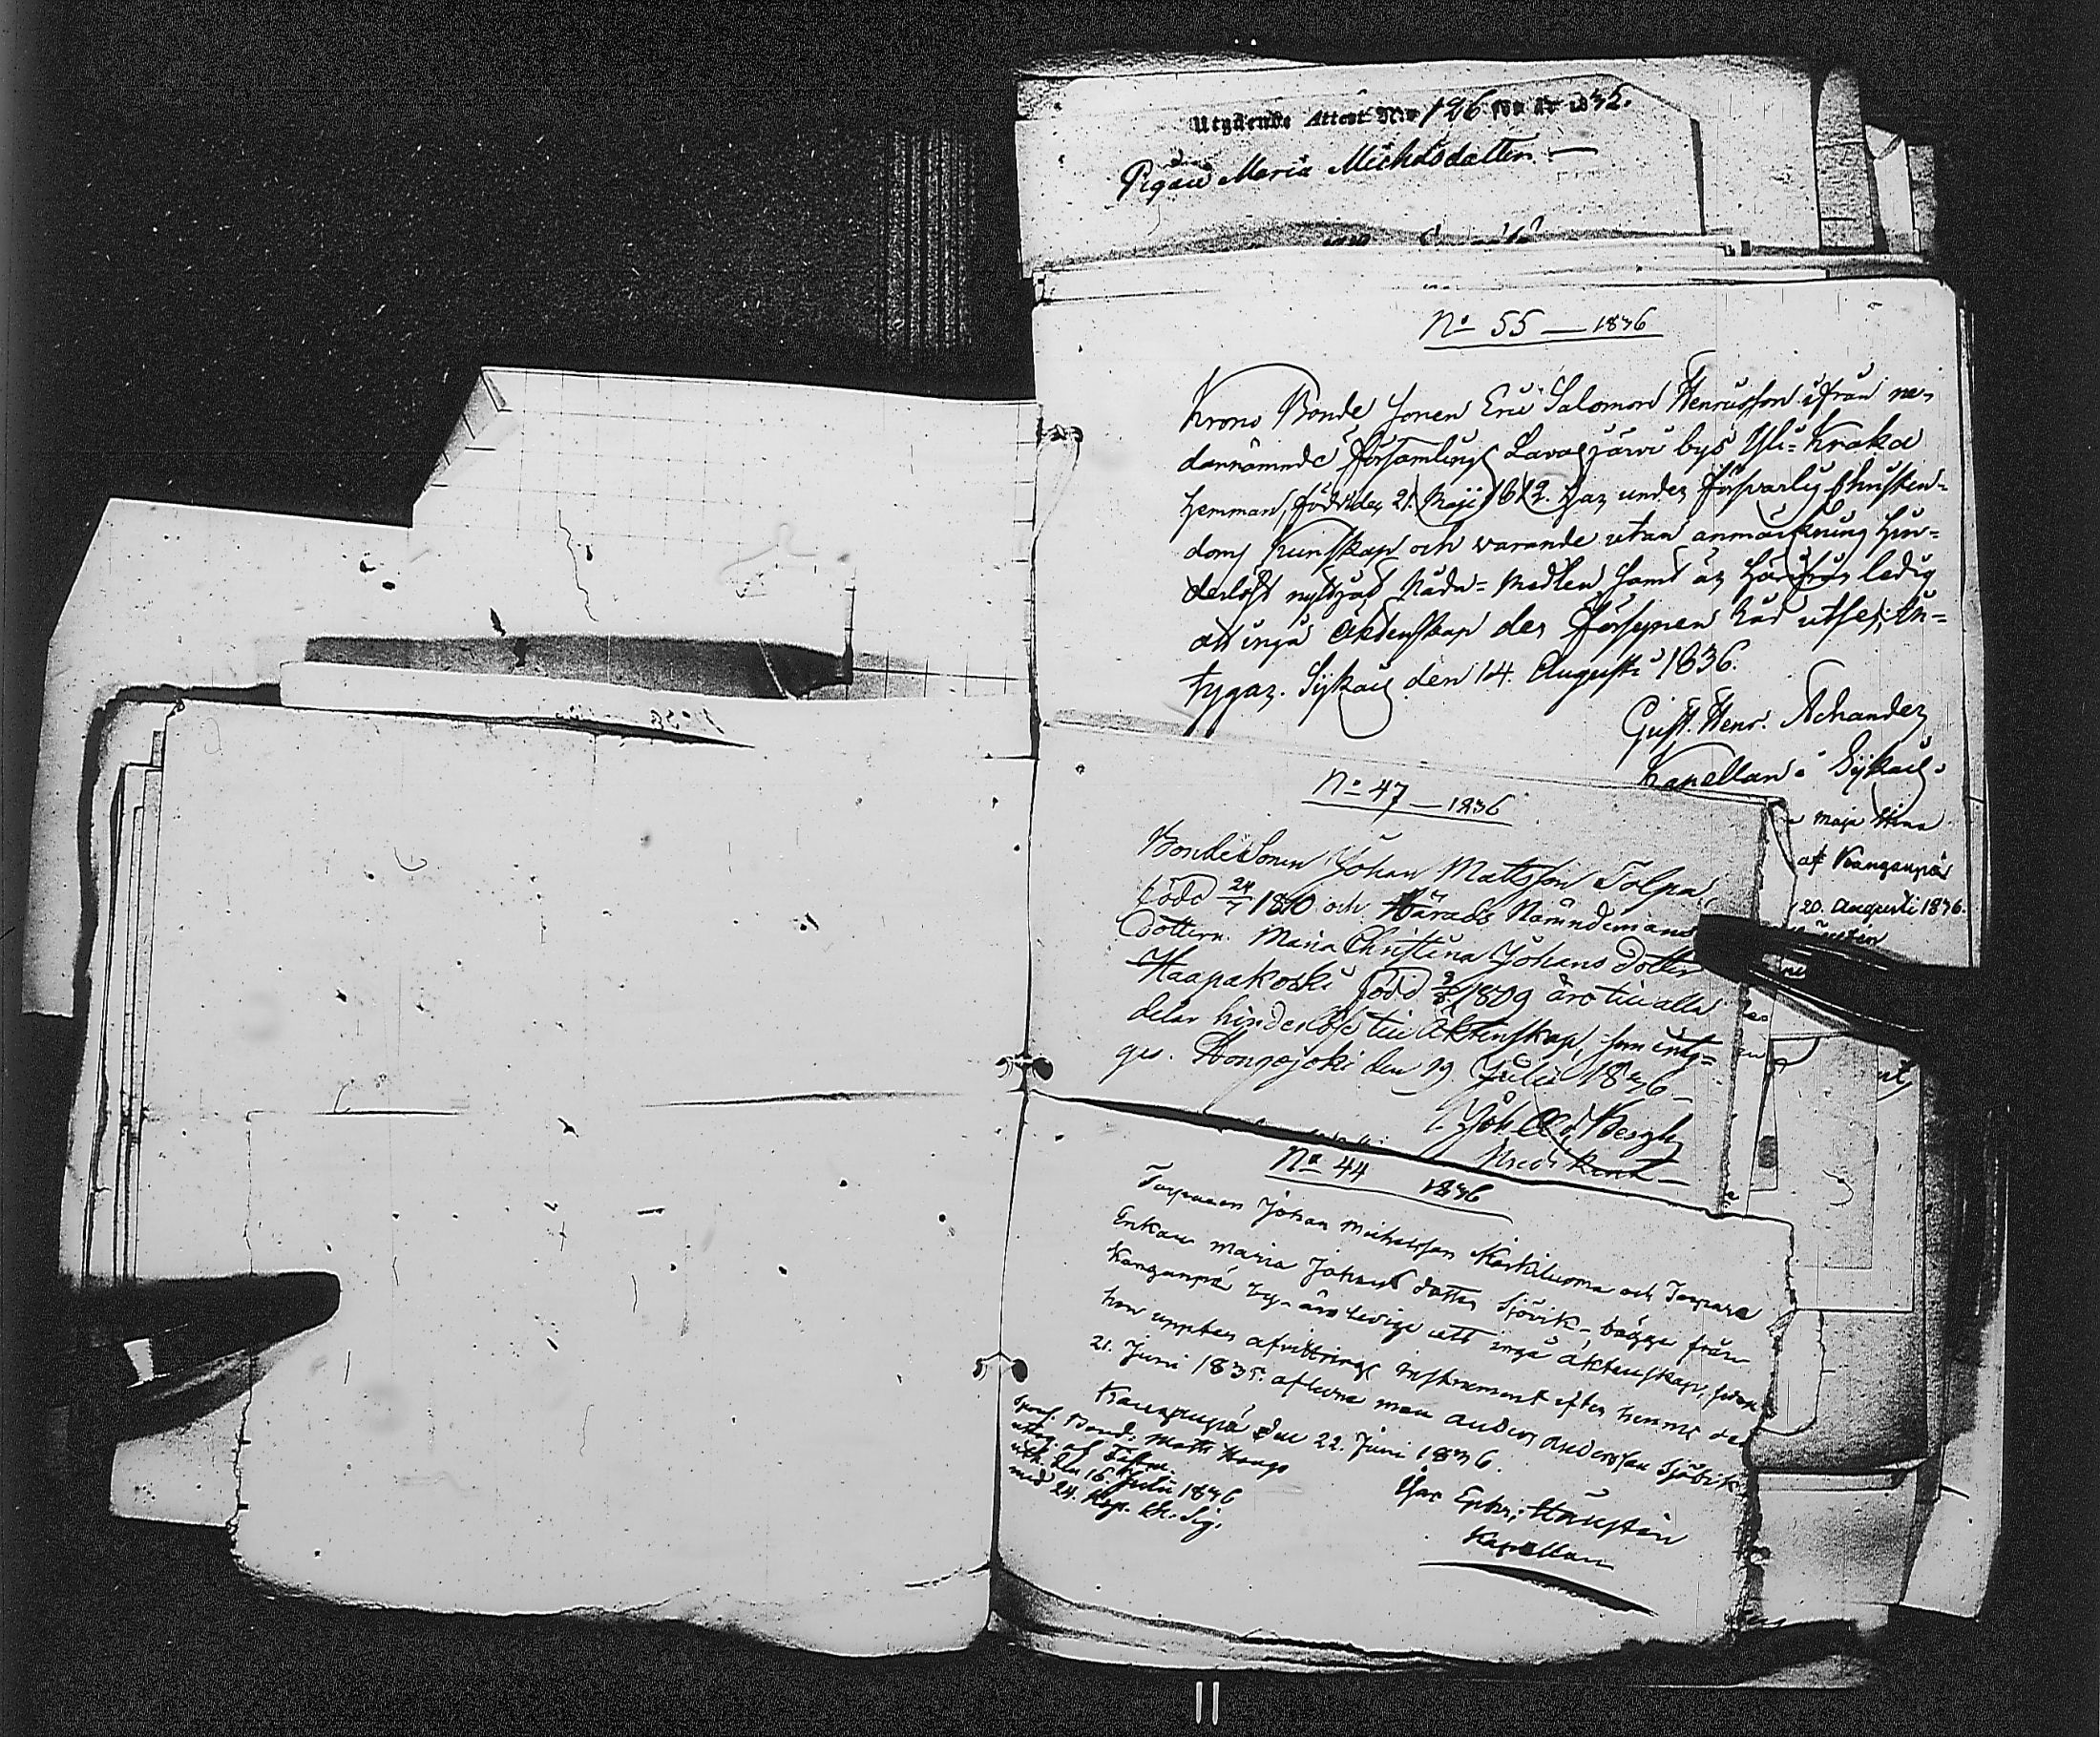 Utgående Attest N:o 126 för år 1832.
Pigan Maria Michelsdotter. —
N:o 55 — 1836
Krono Bonde Sonen Eric Salomon Henricsson ifrån ne-
dannämnde församlings Lavasjärvi bys Yli-Kraka
hemman, född den 21. Maji 1812. har under försvarlig Christen-
doms kunskap och warande utan anmärkning hin-
derlöst nyttjat Nåde-Medlen samt är härifrån ledig
att ingå äktenskap der Försynen Råd utser; in-
tygar. Sykais den 14. Augusti 1836.
Gust. Henr. Achander
Kapellan i Sykais.
Maja Stina
af Kangaspää
20. Augusti 1836.
N:o 47 — 1836
Bonde Sonen Johan Mattsson Tolpa,
född 24/7 1810 och Härads Nämndemans
Dottern Maria Christina Johans Dotter
Haapakoski född 1809 äro till alla
delar hinderlöse till Äktenskap, som inty-
gas. Hongojoki den 19. Julii 1836 —
Joh. Bergh
Predikant —
N:o 44 1836
Torparen Johan Michelsson Koskiluoma och Torpare
Enkan Maria Johans dotter Sjövik — bägge från
Kanganpää by — äro ledige att ingå äktenskap, sedan
hon uppter afvittrings instrument efter hennes den
21. Juni 1835 aflidne man Anders Andersson Sjövik.
Kangaspää den 22. Juni 1836.
Isac Ephr. Hånstin
Kapellan
Bond: Matts Hongo
uttog af
den 16. Julii 1836
med 24. Kop. Sig.